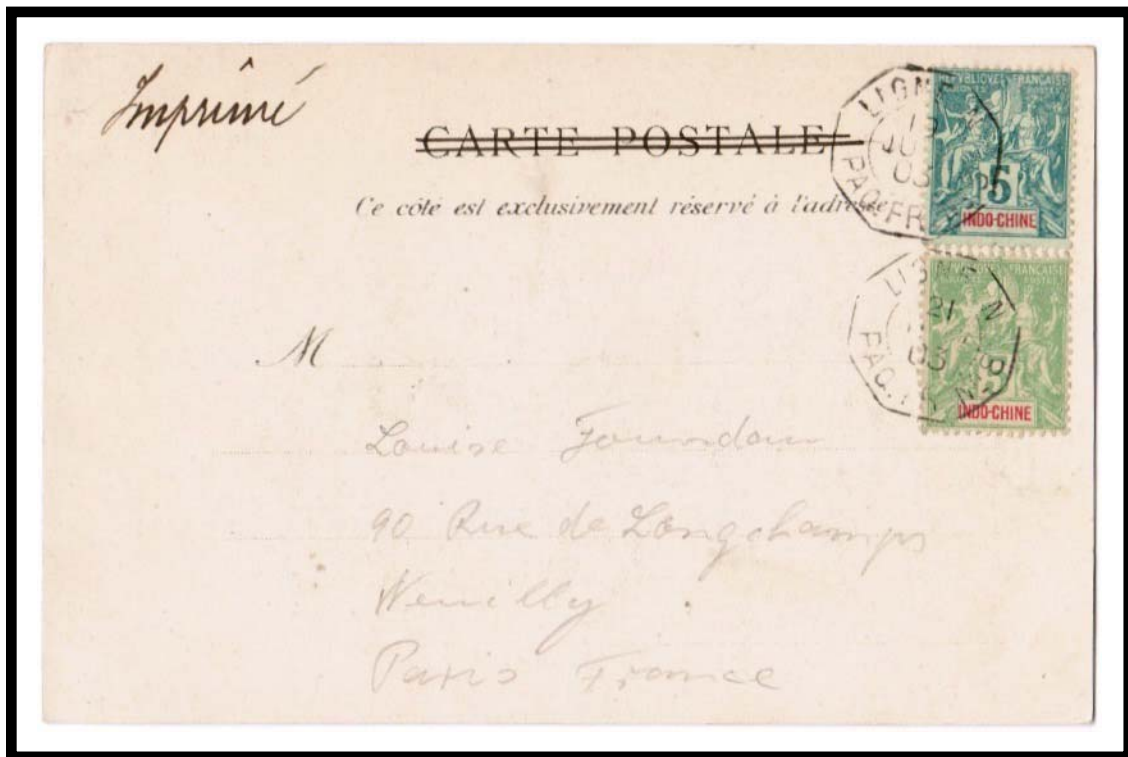 Imprimé
CARTE POSTALE
Ce côté est exclusivement réservé à l'adresse
LIGNE N
JU
03
PAQ. FR. N
REPUBLIQUE FRANÇAISE
5
INDO-CHINE
LIGNE N
21
03
PAQ. FR. N
REPUBLIQUE FRANÇAISE
INDO-CHINE
M
Louise
90 Rue de Longchamps
Neuilly
Paris France